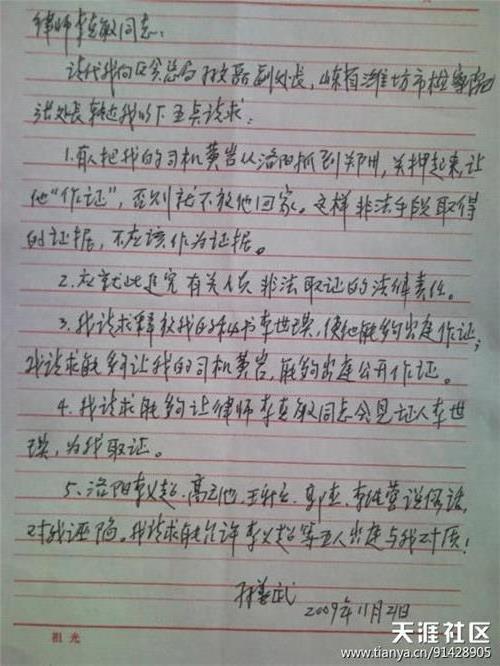 律师李真敏同志:
请代我向反贪总局孙  副处长,山东省潍坊市检察院
洪处长转达我以下五点请求:
1.有人把我的司机黄岩从洛阳抓到郑州,关押起来,让
他“作证”,否则就不放他回家。这样非法手段取得
的证据,不应该作为证据。
2.应就此追究有关人员非法取证的法律责任。
3.我请求释放我的秘书李世瑛,使他能够出庭作证;
我请求能够让我的司机黄岩,能够出庭公开作证。
4.我请求能够让律师李真敏同志会见证人李世
瑛,为我取证。
5.洛阳李义超、高    、王   、郭  、李  营说假话,
对我诬陷。我请求能允许李义超等五人出庭与我对质!
孙善武
2009年11月21日
祖光
天涯社区
www.tianya.cn/91428905